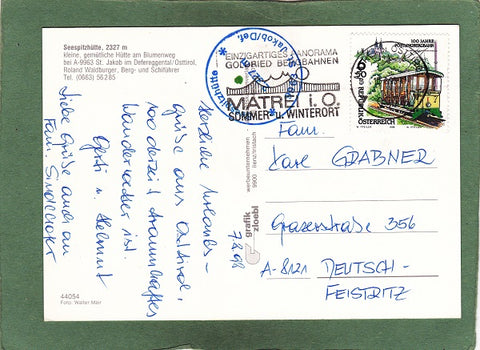 Seespitzhütte, 2327 m
kleine, gemütliche Hütte am Blumenweg
bei A-9963 St. Jakob im Defereggental/Osttirol,
Roland Waldburger, Berg- und Schiführer
Tel. (0663) 56285
EINZIGARTIGES PANORAMA
GOLDRIED BERGBAHNEN
MATREI i. O.
SOMMER- u. WINTERORT
100 JAHRE
REPUBLIK
ÖSTERREICH
7.8.98
Herzliche Urlaubs-
grüße aus Osttirol,
wo derzeit traumhaftes
Wanderwetter ist.
Gerti u. Helmut
Liebe Grüße auch an
Fam.
Fam.
Karl GRABNER
Grazerstraße 356
A-8121 DEUTSCH-
FEISTRITZ
grafik
zloebl
werbeunternehmen
9900 lienz/tristach
44054
Foto: Walter Mair